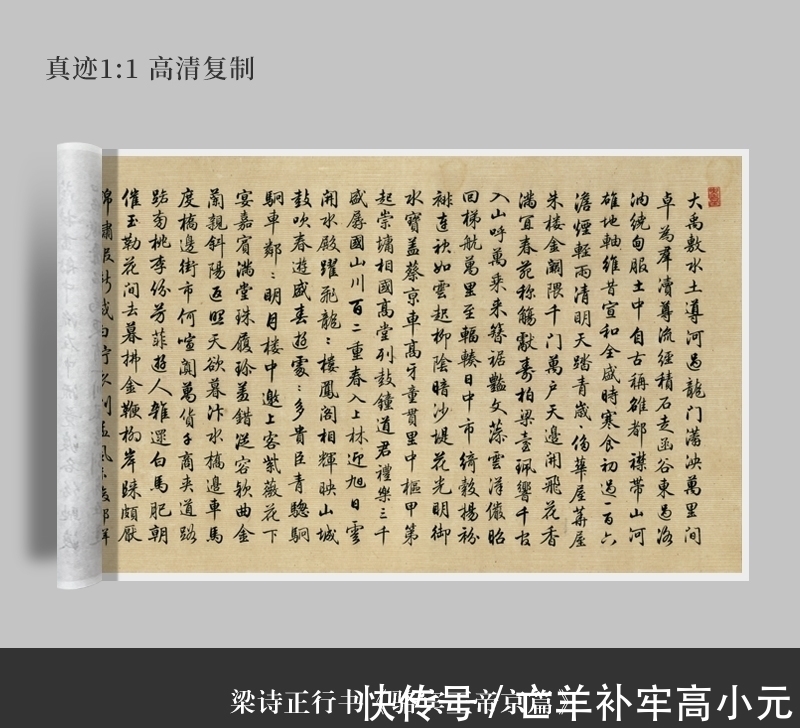 真迹1:1 高清复制
大禹敷水土導河過龍门泱萬里间
卓為羣瀆尊流經積石走函谷東過洛
汭繞甸服土中自古稱雄都襟帶山河
雄地軸維昔宣和全盛時寒食初過一百六
澹煙輕雨清明天踏青歲華屋屋
朱楼金闕隈千门萬户天邊開飛花香
滿宜春苑称觴獻壽柏梁臺珮響千官
入山呼萬乘来簪裾艷文藻雲洋儼昭
回梯航萬里至輻輳日中市綺縠楊紛
裶連袂如雲起柳陰暗沙堤花光明御
水寶盖蔡京車高牙童貫里中樞甲第
起崇墉相國高堂列鼓鐘道君禮樂三千
盛孱國山川百二重春入上林迎旭日雲
開水殿躍飛龍：樓鳳閣相輝映山城
鼓吹春遊盛春遊處：多貴臣青驄駉
駉車鄰：明月楼中邀上客紫薇花下
宴嘉賓滿堂珠履珍盖錯從容欵曲金
蘭親斜陽返照天欲暮汴水橋邊車馬
度橋邊街市何喧闐萬貨千商夾道路
南桃李份芳菲遊人雜遝白馬肥朝
催玉勒花间去暮拂金鞭柳岸歸頗厭
梁诗正行书帝京篇》
快传号 / 亡羊补牢高小元